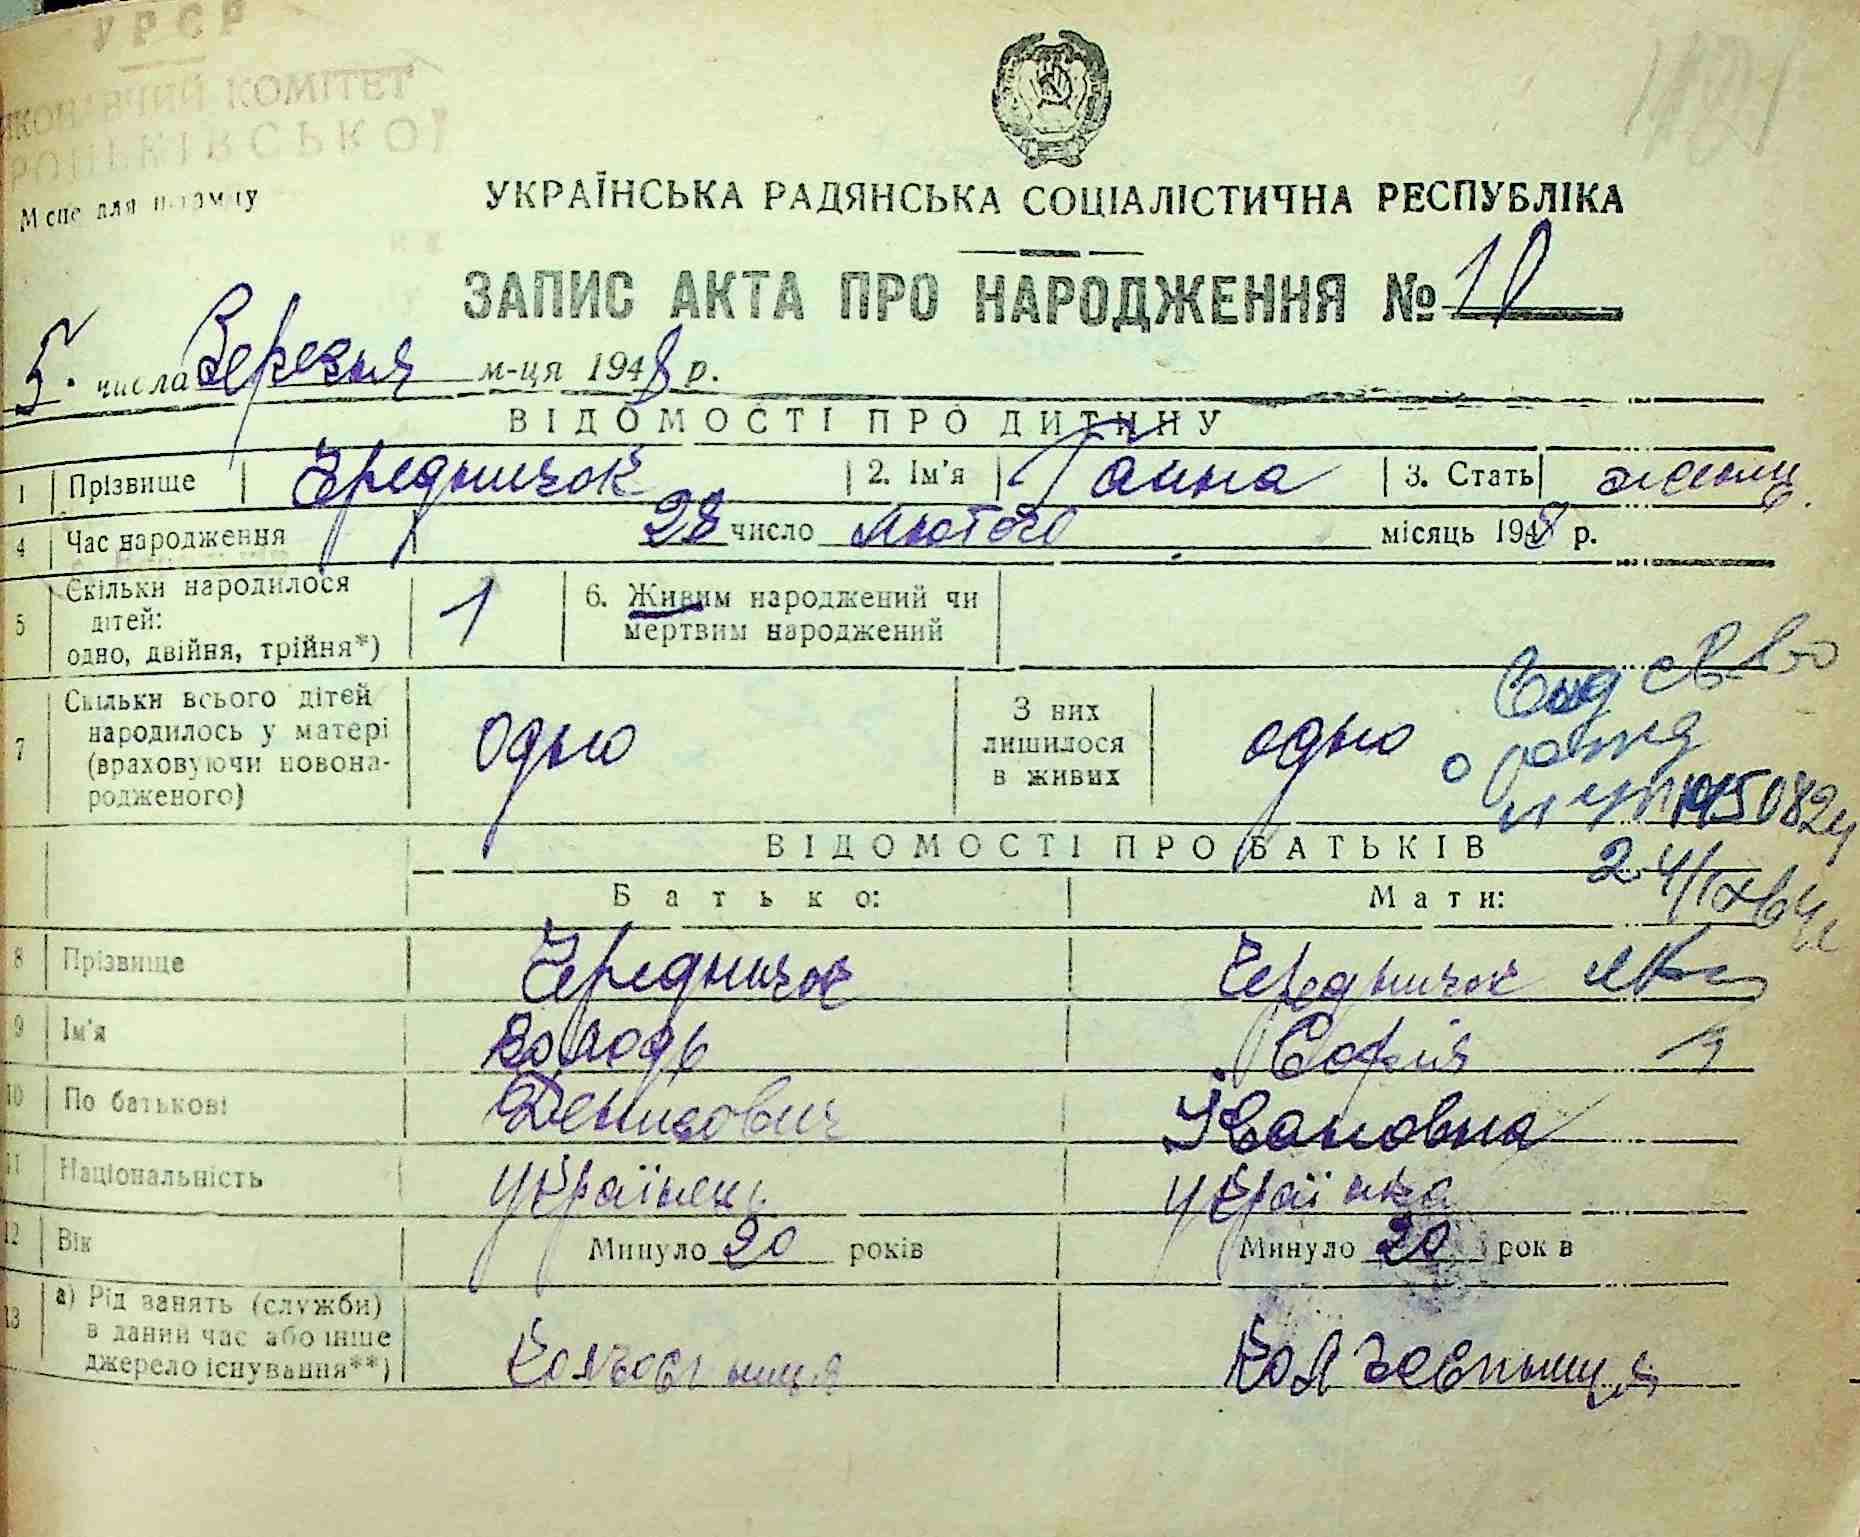 УРСР
ВИКОНАВЧИЙ КОМІТЕТ
Місце для штампу
УКРАЇНСЬКА РАДЯНСЬКА СОЦІАЛІСТИЧНА РЕСПУБЛІКА
ЗАПИС АКТА ПРО НАРОДЖЕННЯ № 10
5. числа Березня м-ця 1948 р.
ВІДОМОСТІ ПРО ДИТИНУ
1 Прізвище Чередничок 2. Ім'я Ганна 3. Стать жіноц.
4 Час народження 28 число лютого місяць 1948 р.
5 Скільки народилося дітей: одно, двійня, трійня*) 1 6. Живим народжений чи мертвим народжений
7 Скільки всього дітей народилось у матері (враховуючи новонародженого) одно З них лишилося в живих одно
Выд св во
о рожд
ВІДОМОСТІ ПРО БАТЬКІВ
Батько: Мати:
8 Прізвище Чередничок Чередничок
9 Ім'я Володь Софія
10 По батькові Денисович Івановна
11 Національність українець українка
12 Вік Минуло 20 років Минуло 20 років
13 а) Рід занять (служби) в даний час або інше джерело існування**) колгоспниця колгоспниця